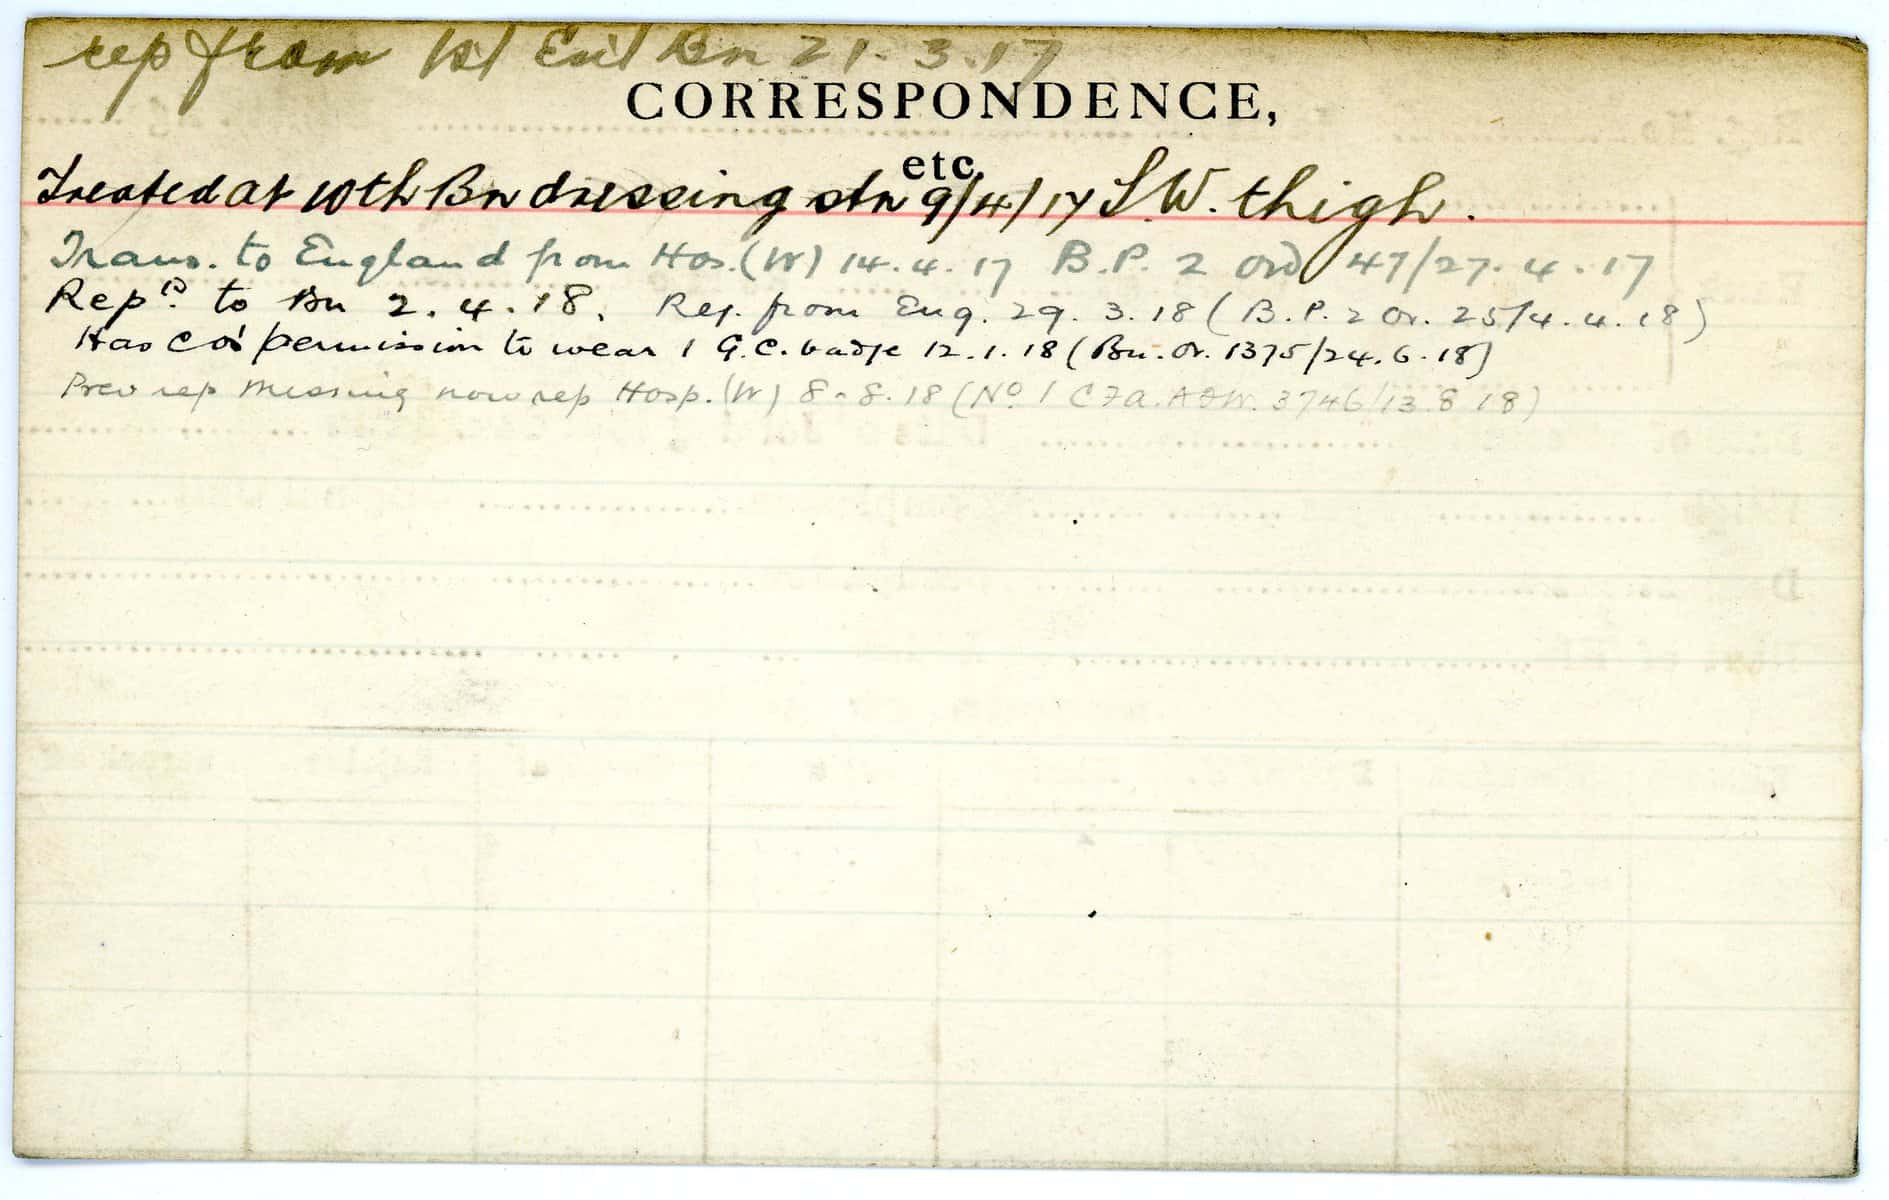 rep from 1st Ent Bn 21.3.17
CORRESPONDENCE,
etc
Treated at 10th Bn dressing stn 9/4/17 S.W. thigh.
Trans. to England from Hos. (W) 14.4.17 B.P. 2 Ord 47/27.4.17
Rep'd. to Bn 2.4.18. Rep. from Eng. 29.3.18 (B.P. 2 Or. 25/4.4.18)
Has CO's permission to wear 1 G.C. badge 12.1.18 (Bn. Or. 1375/24.6.18)
Prev rep missing now rep Hosp. (W) 8-8.18 (No 1 CFA. A3W. 3746/13 8 18)